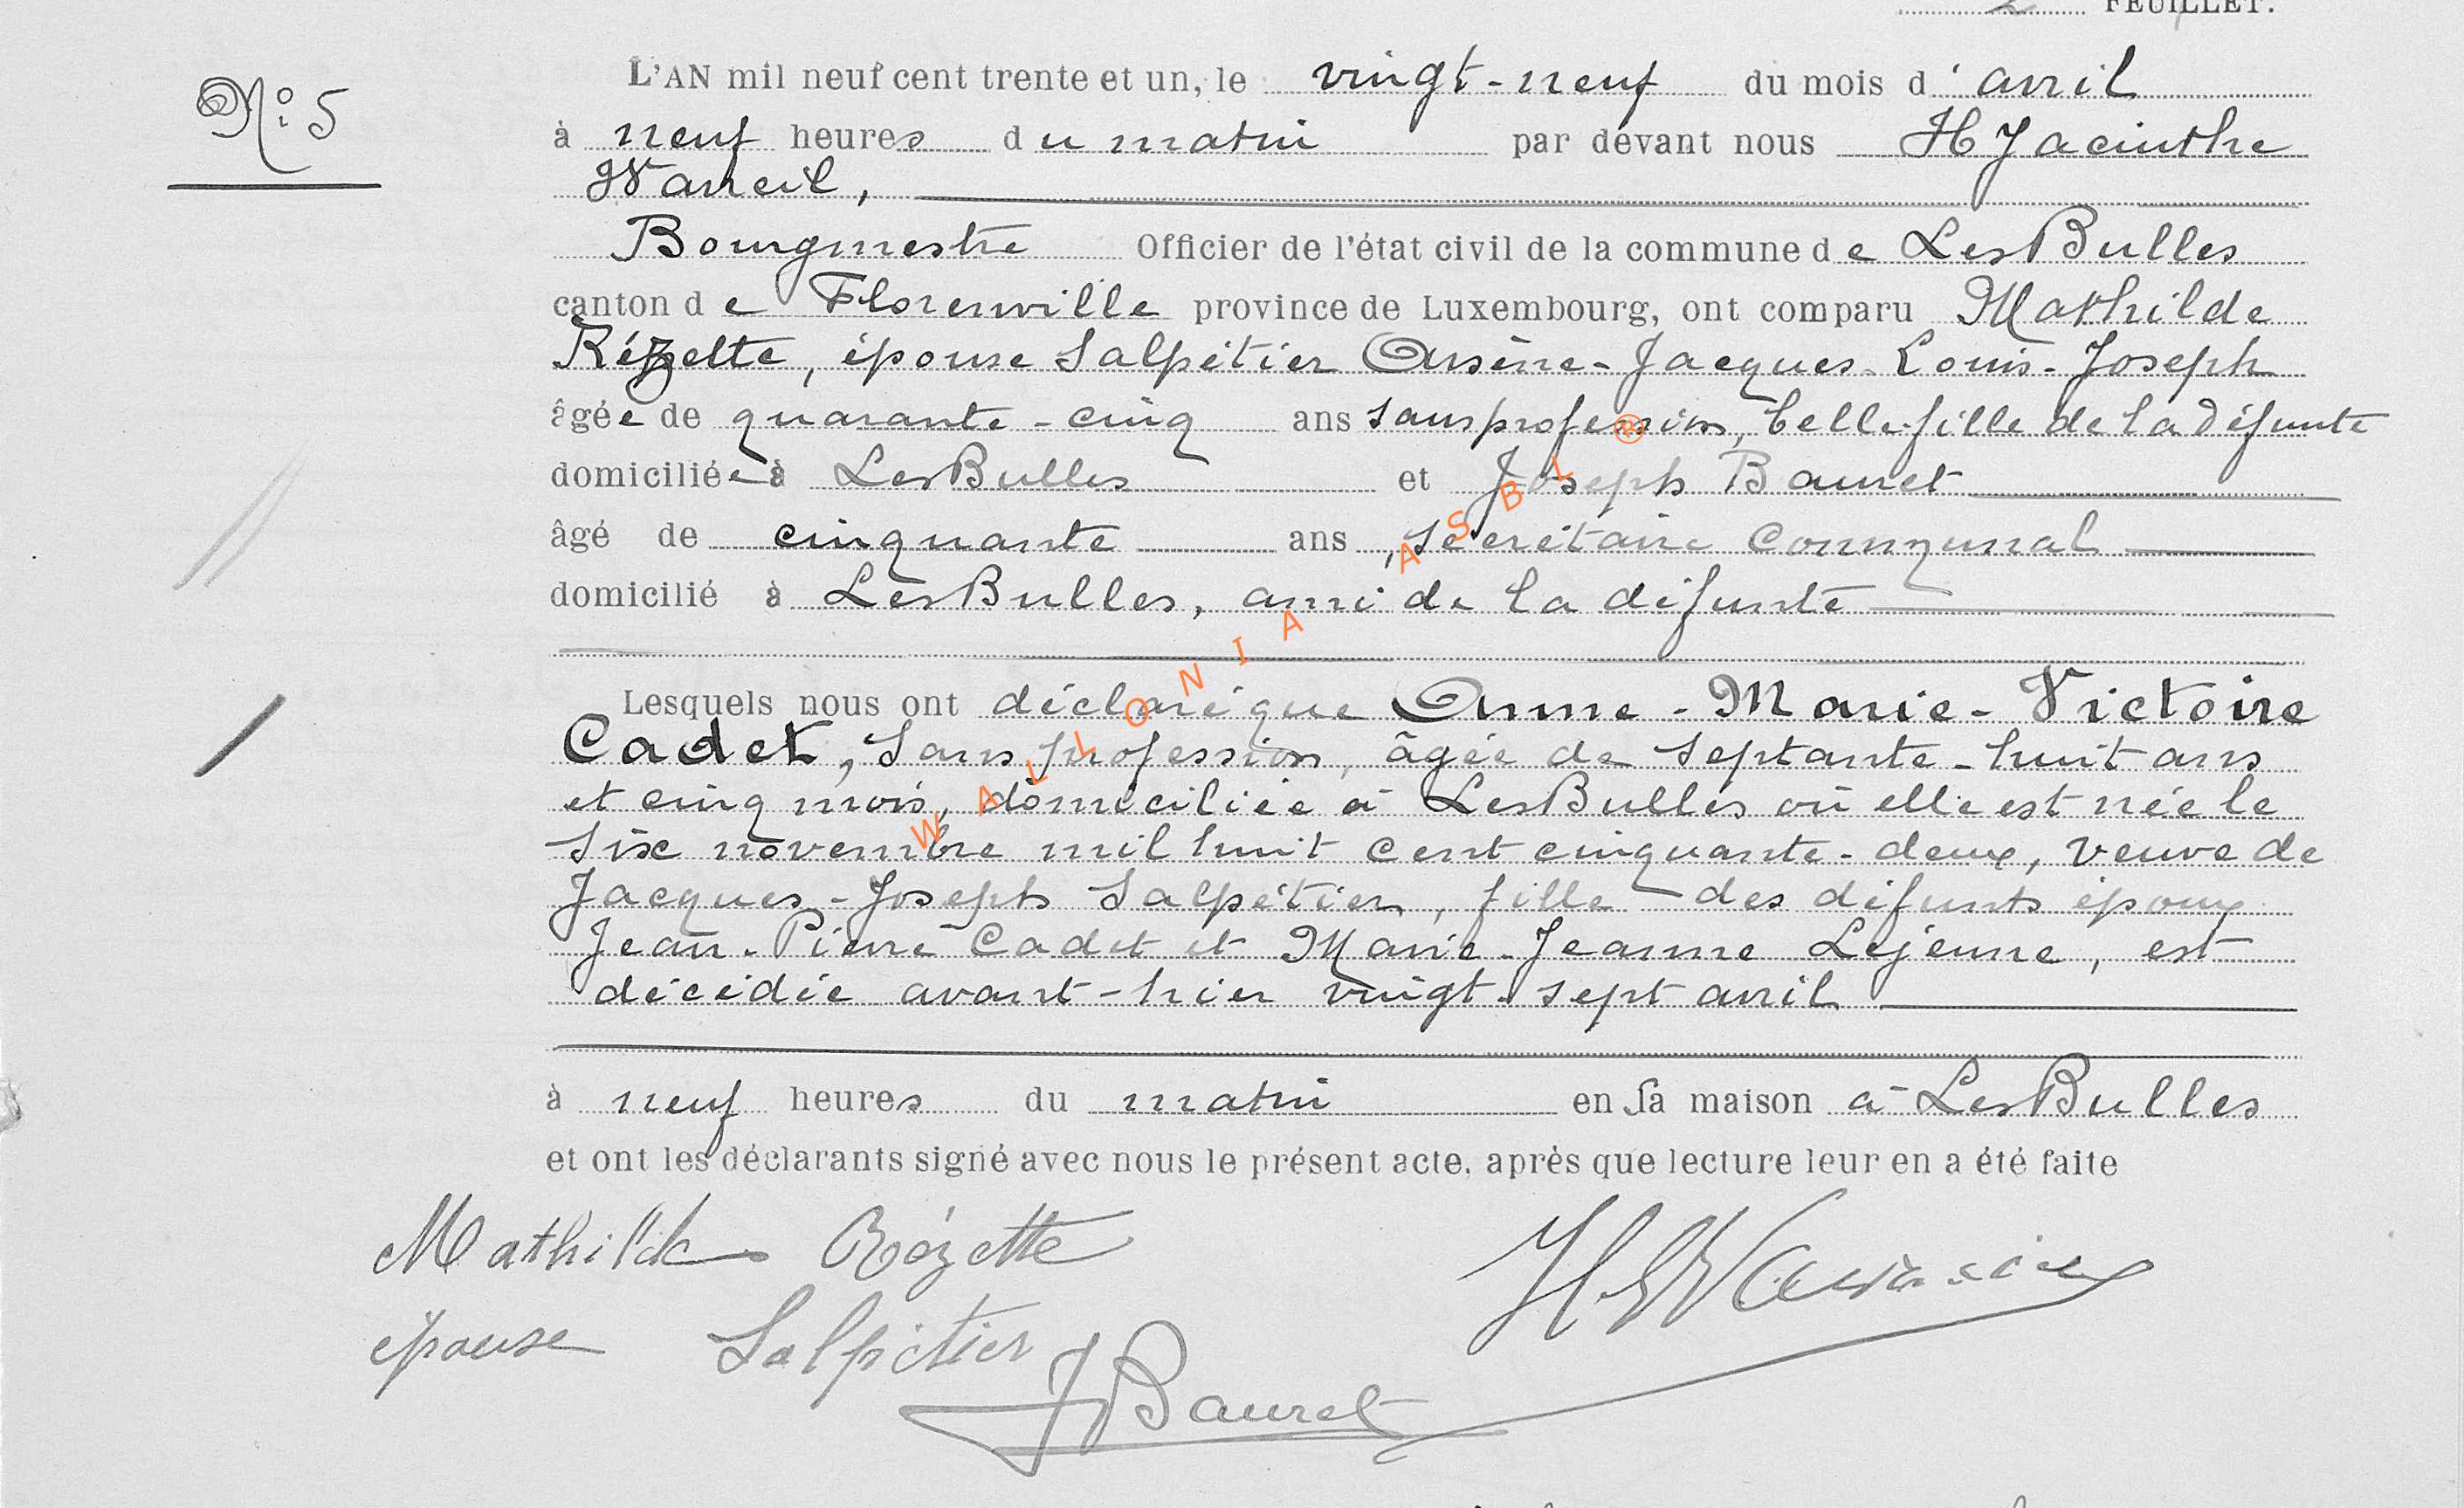 2 FEUILLET.
N° 5
L'AN mil neuf cent trente et un, le vingt-neuf du mois d'avril
à neuf heures du matin par devant nous Hyacinthe
Wareil,
Bourgmestre Officier de l'état civil de la commune de Les Bulles
canton de Florenville province de Luxembourg, ont comparu Mathilde
Rézette, épouse Salpétier Arsène-Jacques-Louis-Joseph
âgée de quarante-cinq ans sans profession, belle-fille de la défunte
domiciliée à Les Bulles et Joseph Bauret
âgé de cinquante ans, secrétaire communal
domicilié à Les Bulles, ami de la défunte
Lesquels nous ont déclaré que Anne-Marie-Victoire
Cadet, sans profession, âgée de septante-huit ans
et cinq mois, domiciliée à Les Bulles où elle est née le
six novembre mil huit cent cinquante-deux, veuve de
Jacques-Joseph Salpétier, fille des défunts époux
Jean-Pierre Cadet et Marie-Jeanne Lejeune, est
décédée avant-hier vingt-sept avril
à neuf heures du matin en sa maison à Les Bulles
et ont les déclarants signé avec nous le présent acte, après que lecture leur en a été faite
Mathilde Rézette
épouse Salpétier
J Bauret
WALLONIA ASBL ®